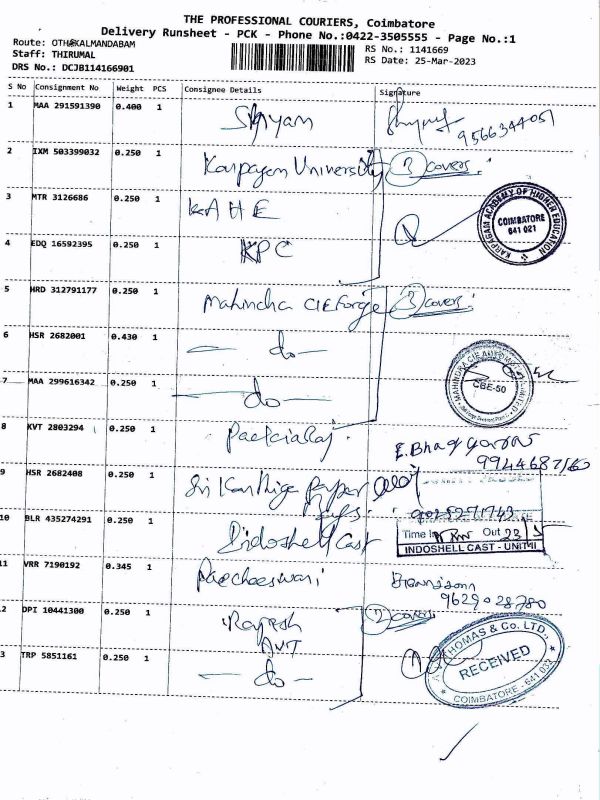 THE PROFESSIONAL COURIERS, Coimbatore
Delivery Runsheet - PCK - Phone No.:0422-3505555 - Page No.:1
Route: OTH@KALMANDABAM
RS No.: 1141669
Staff: THIRUMAL
RS Date: 25-Mar-2023
DRS No.: DCJB114166901
S No Consignment No Weight PCS Consignee Details Signature
1 MAA 291591390 0.400 1 Shyam 9566344051
2 IXM 503399032 0.250 1 Karpagam University 3 covers.
3 MTR 3126686 0.250 1 KAHE
KARPAGAM ACADEMY OF HIGHER EDUCATION
COIMBATORE
641 021
4 EDQ 16592395 0.250 1 KPC
5 HRD 312791177 0.250 1 Mahindra CIE Forge 3 covers.
6 HSR 2682001 0.430 1 - do -
CBE-50
7 MAA 299616342 0.250 1 - do -
8 KVT 2803294 0.250 1
9 HSR 2682408 0.250 1 Sri Karthiga Paper
10 BLR 435274291 0.250 1 Indoshell Cast
Time In Out
INDOSHELL CAST - UNIT II
11 VRR 7190192 0.345 1
9629028780
2 DPI 10441300 0.250 1 Rajesh 2 covers
AVT
3 TRP 5851161 0.250 1 - do -
THOMAS & Co. LTD.,
RECEIVED
COIMBATORE